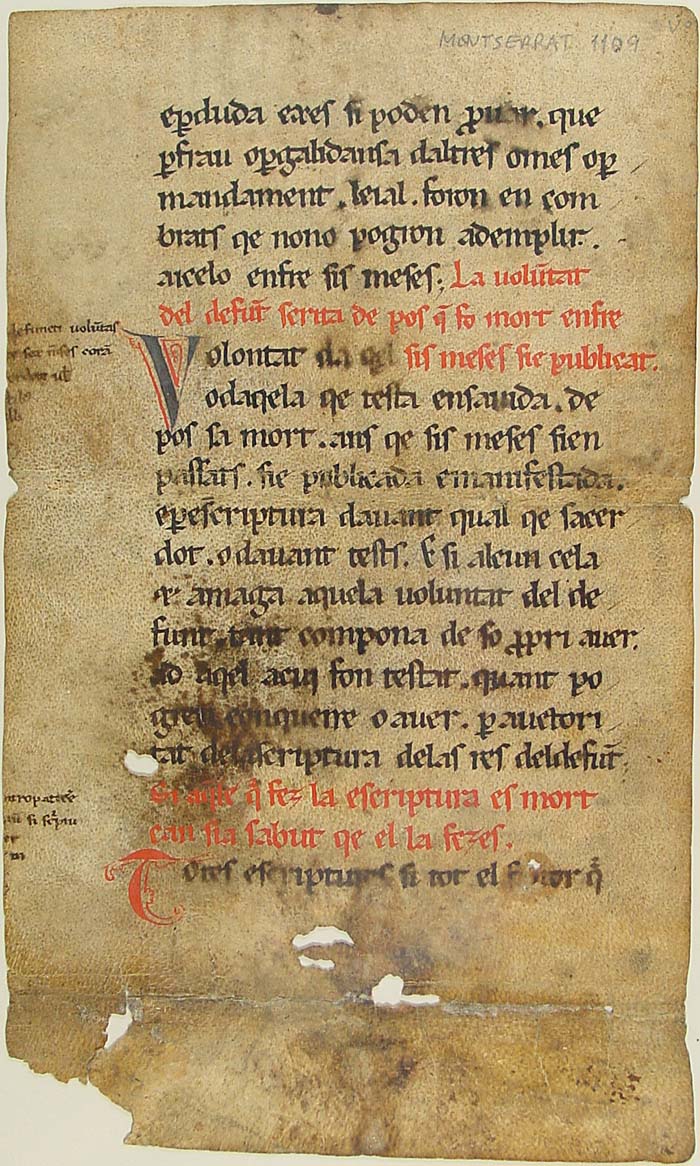 MONTSERRAT 1109
eperduda eres si poden ꝓuar. que
ꝑfrau oꝑgalidansa daltres omes oꝑ
mandament. leial. foron en com
brats qe nono pogron ademplir.
aicelo enfre sis meses; La uolūtat
del defūt scrita de pos q̄ fo mort enfre
Volontat sis meses sie publicat.
odaqela qe testa ensauida. de
pos sa mort. ans qe sis meses sien
passats. sie publicada emanifestada.
eꝑescriptura dauant qual qe sacer
dot. o dauant tests. E si alcun cela
amaga aquela uoluntat del de
funt. tant compona de so ꝓpri auer.
ad aqel acui fon testat. quant po
conquerre o auer. ꝑ auctori
tat delascriptura delas res deldefūt
Si q̄ fez la escriptura es mort
can sia sabut qe el la fezes.
Totes escriptures si tot el q̄
defuncti uolūtas